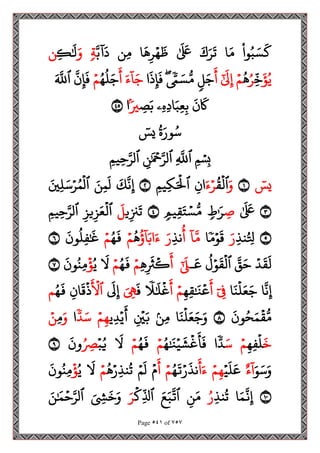 كَسَبُواْ مَا تَرَكَ عَلَىٰ ظَهْرِهَا مِن دَآبَّةٍ وَلَٰكِن
يُؤَخِّرُهُمْ إِلَىٰٓ أَجَلٍ مُّسَمًّى ۖ فَإِذَا جَآءَ أَجَلُهُمْ فَإِنَّ ٱللَّهَ
كَانَ بِعِبَادِهِۦ بَصِيرًا ٤٥
سُورَةُ يسٓ
بِسْمِ ٱللَّهِ ٱلرَّحْمَٰنِ ٱلرَّحِيمِ
يسٓ ١ وَٱلْقُرْءَانِ ٱلْحَكِيمِ ٢ إِنَّكَ لَمِنَ ٱلْمُرْسَلِينَ
٣ عَلَىٰ صِرَٰطٍ مُّسْتَقِيمٍ ٤ تَنزِيلَ ٱلْعَزِيزِ ٱلرَّحِيمِ
٥ لِتُنذِرَ قَوْمًا مَّآ أُنذِرَ ءَابَآؤُهُمْ فَهُمْ غَٰفِلُونَ ٦
لَقَدْ حَقَّ ٱلْقَوْلُ عَلَىٰٓ أَكْثَرِهِمْ فَهُمْ لَا يُؤْمِنُونَ ٧
إِنَّا جَعَلْنَا فِىٓ أَعْنَٰقِهِمْ أَغْلَٰلًا فَهِىَ إِلَى ٱلْأَذْقَانِ فَهُم
مُّقْمَحُونَ ٨ وَجَعَلْنَا مِنۢ بَيْنِ أَيْدِيهِمْ سَدًّا وَمِنْ
خَلْفِهِمْ سَدًّا فَأَغْشَيْنَٰهُمْ فَهُمْ لَا يُبْصِرُونَ ٩
وَسَوَآءٌ عَلَيْهِمْ ءَأَنذَرْتَهُمْ أَمْ لَمْ تُنذِرْهُمْ لَا يُؤْمِنُونَ
١٠ إِنَّمَا تُنذِرُ مَنِ ٱتَّبَعَ ٱلذِّكْرَ وَخَشِىَ ٱلرَّحْمَٰنَ
Page ٥٤١ of ٧٥٧